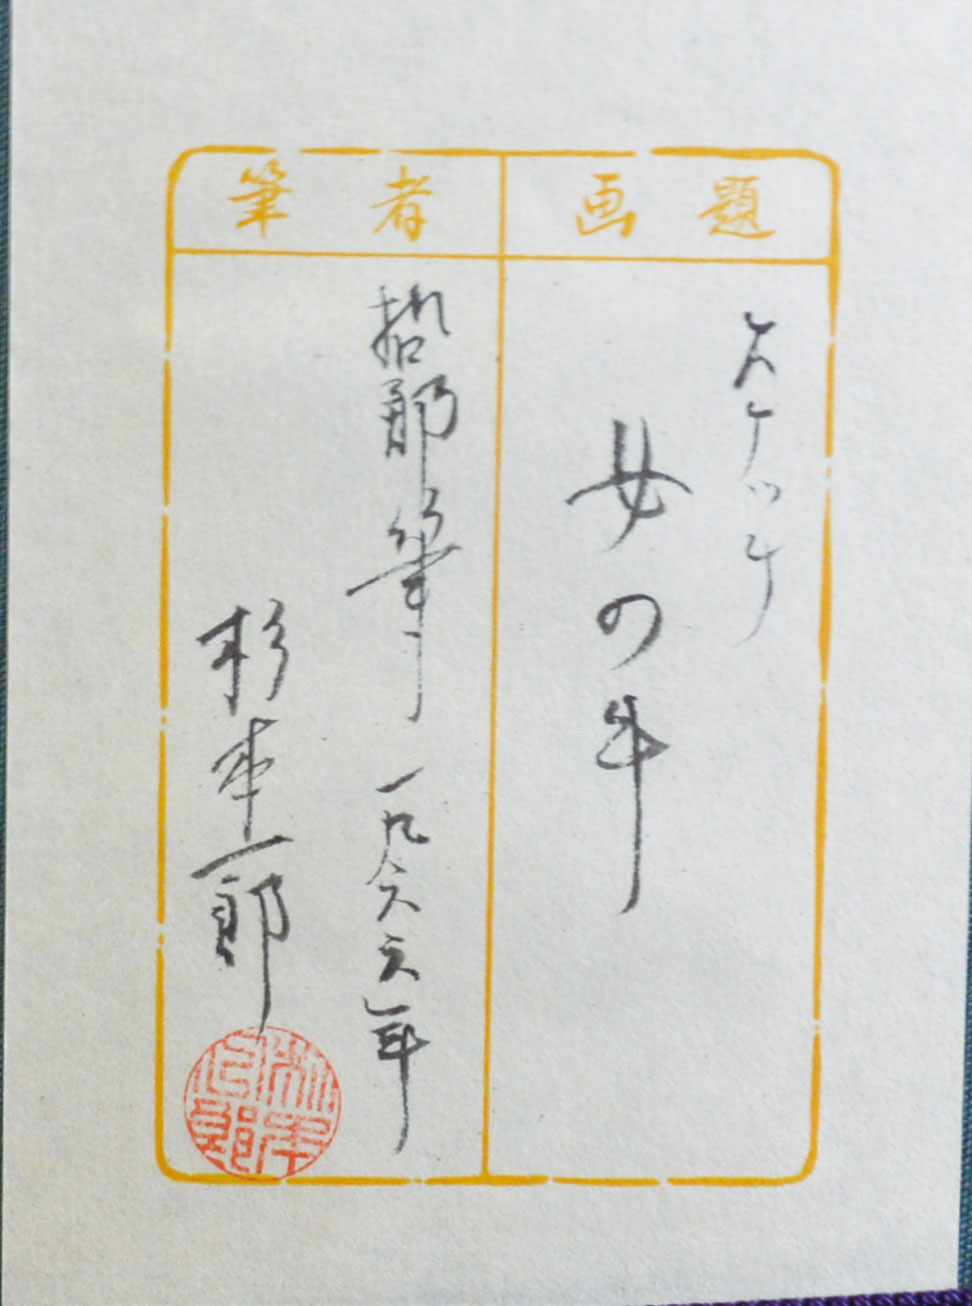 画題
スケッチ
女の牛
筆者
哲郎筆 一九六六年
杉本一郎